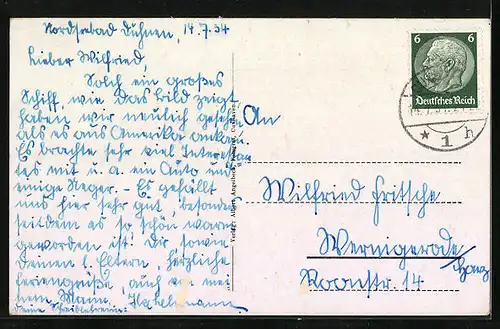 Nordseebad Duhnen, 14.7.34
Lieber Wilfried,
Solch ein großes
Schiff, wie das Bild zeigt
haben wir neulich gesehen
als es aus Amerika ankam.
Es brachte sehr viel Interessan
tes mit u. a. ein Auto und
einige Neger. - Es gefällt
uns hier sehr gut, besonders
seitdem es so schön warm
geworden ist. Dir sowie
Deinen l. Eltern, herzliche
Feriengrüße, auch an mei
nem Mann.
Deine
An
Wilfried Fritsche
Wernigerode/
Harz
Roonstr. 14
6 6
Deutsches Reich
* 1 h
Verlag: